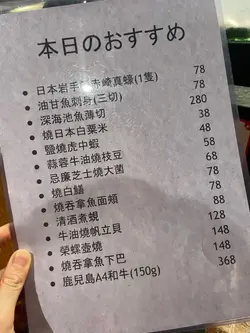 本日のおすすめ
日本岩手 赤崎真蠔(1隻) 78
油甘魚刺身(三切) 78
深海池魚薄切 280
燒日本白粟米 38
鹽燒虎中蝦 48
蒜蓉牛油燒枝豆 58
忌廉芝士燒大菌 48
燒白鱔 78
燒吞拿魚面頰 78
清酒煮蜆 88
牛油燒帆立貝 128
榮螺壺燒 148
燒吞拿魚下巴 148
鹿兒島A4和牛(150g) 368